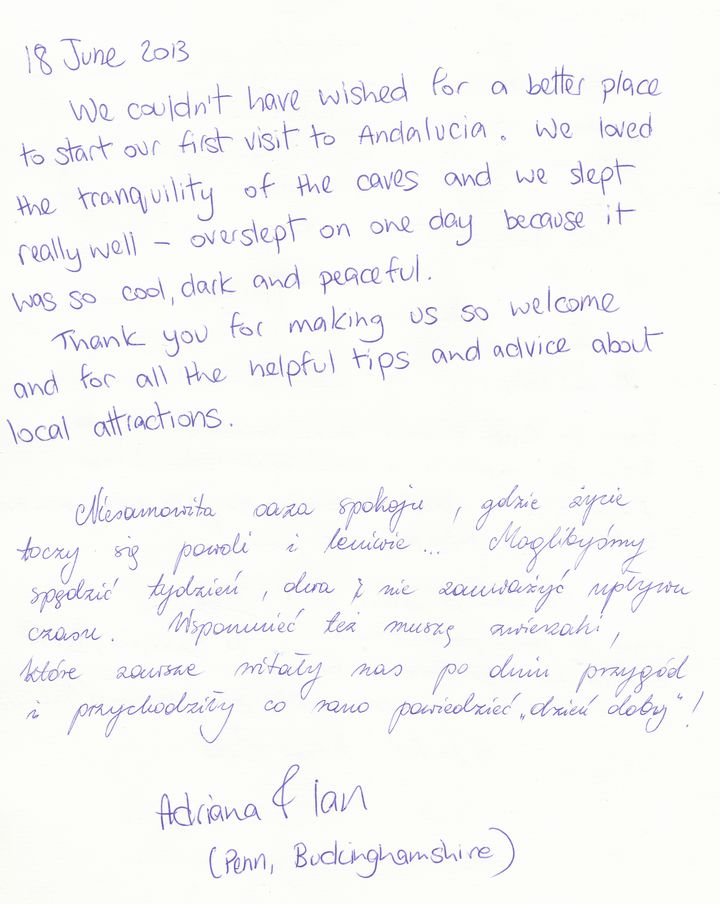 18 June 2013
We couldn't have wished for a better place
to start our first visit to Andalucia. We loved
the tranquility of the caves and we slept
really well – overslept on one day because it
was so cool, dark and peaceful.
Thank you for making us so welcome
and for all the helpful tips and advice about
local attractions.
Niesamowita oaza spokoju, gdzie życie
toczy się powoli i leniwie... Moglibyśmy
spędzić tydzień, dwa i nie zauważyć upływu
czasu. Wspomnieć też muszę zwierzaki,
które zawsze witały nas po dniu przygód
i przychodziły co rano powiedzieć „dzień dobry"!
Adriana & Ian
(Penn, Buckinghamshire)